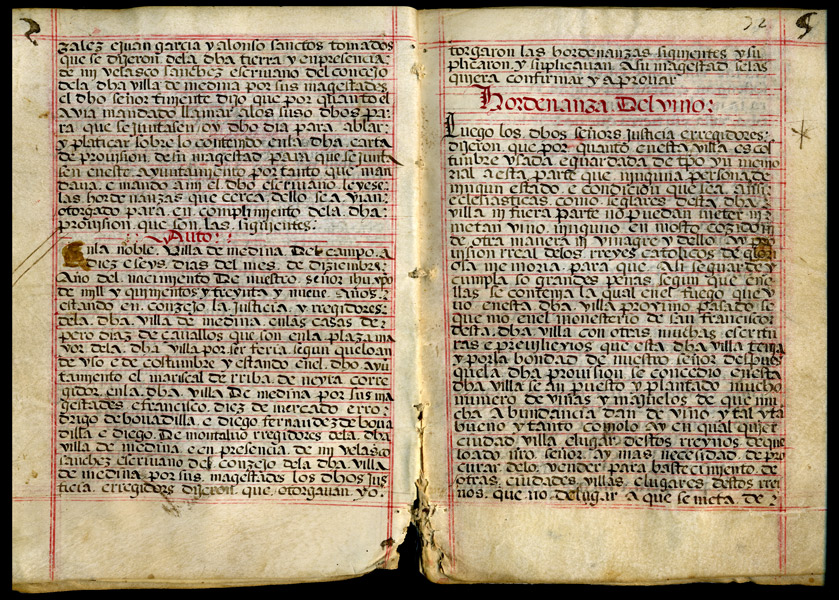 zalez e juan garcia y alonso sanctos tomados
que se dijeron dela dha tierra y en presencia
de mi velasco sanchez escriuano del concejo
dela dha villa de medina por sus magestades
el dho señor tiniente dijo que por quanto el
avia mandado llamar alos suso dhos pa
ra que se juntasen oy dho dia para ablar
y platicar sobre lo contenido en la dha carta
de provision de su magestad para que se junta
sen en este ayuntamiento por tanto que man
daua e mando a mi el dho escriuano leyese
las hordenanzas que cerca dello se avian
otorgado para en complimiento dela dha
provision que son las siguientes:
Auto:
Enla noble villa de medina del campo a
diez e seys dias del mes de diziembre
Año del nacimiento De nuestro señor ihu xpo
de mill y quinientos e treynta y nueve Años
estando en conzejo la justicia y rregidores
dela dha villa de medina enlas casas de
pero diaz de cauallos que son enla plaza ma
yor dela dha villa por ser feria segun que lo an
de vso e de costumbre y estando enel dho ayū
tamiento el mariscal de rriba de neyra corre
gidor enla dha villa De medina por sus ma
gestades e francisco diez de mercado e rro
drigo de bouadilla e diego fernandez de boua
dilla e diego De montaluo rregidores dela dha
villa de medina e en presencia de mi velasco
sanchez escriuano del conzejo dela dha villa
de medina por sus magestades los dhos jus
ticia e rregidors dijeron que otorgauan yo
72
torgaron las hordenanzas siguientes y su
plicaron y suplicauan A su magestad se las
quiera confirmar y aprouar
Hordenanza Del vino:
Luego los dhos señors justicia e rregidores
dijeron que por quanto en esta villa es cos
tumbre vsada e guardada de tpo yn memo
rial a esta parte que ninguna persona de
ningun estado e condicion que sea ansi
eclesiasticas como seglares desta dha
villa ni fuera parte no puedan meter ni
metan vino ninguno en mosto cozido ni
de otra manera ni vinagre y dello ay pro
uision rreal delos rreyes catolicos de glori
osa memoria para que Asi se guarde y
cumpla so grandes penas segun que ene
llas se contenia la qual en el fuego que v
uo enesta dha villa proximo pasado se
quemo enel monesterio de san francisco
desta dha villa con otras muchas escritu
ras e preuilexios que esta dha villa tenia
y por la bondad de nuestro señor despues
que la dha prouision se concedio enesta
dha villa se an puesto y plantado mucho
numero de viñas y majuelos de que mu
cha Abundancia dan de vino y tal y tā
bueno y tanto como lo ay en qual quier
ciudad villa e lugar destos rreynos de que
loado nro señor ay mas necesidad de pro
curar delo vender para bastecimiento de
otras ciudades villas e lugares destos rrei
nos que no de lugar a que se meta de